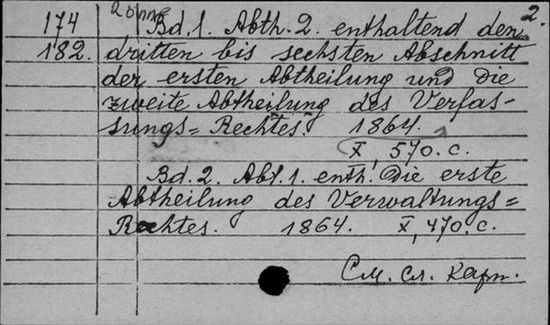 2.
174 Bd. 1. Abth. 2. enthaltend den
182. dritten bis sechsten Abschnitt
der ersten Abtheilung und die
zweite Abtheilung des Verfas-
sungs=Rechtes. 1864.
X, 570. c.
Bd. 2. Abt. 1. enth. die erste
Abtheilung des Verwaltungs=
Rechtes. 1864. X, 470. c.
См. сл. карт.